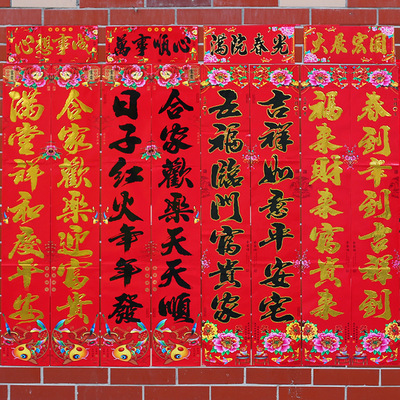 心想事成
萬事順心
满院春光
大展宏圖
春到年到吉祥到
福来財来富貴来
吉祥如意平安宅
五福臨門富貴家
合家歡樂天天順
日子红火年年發
合家歡樂迎富貴
满堂祥和慶平安